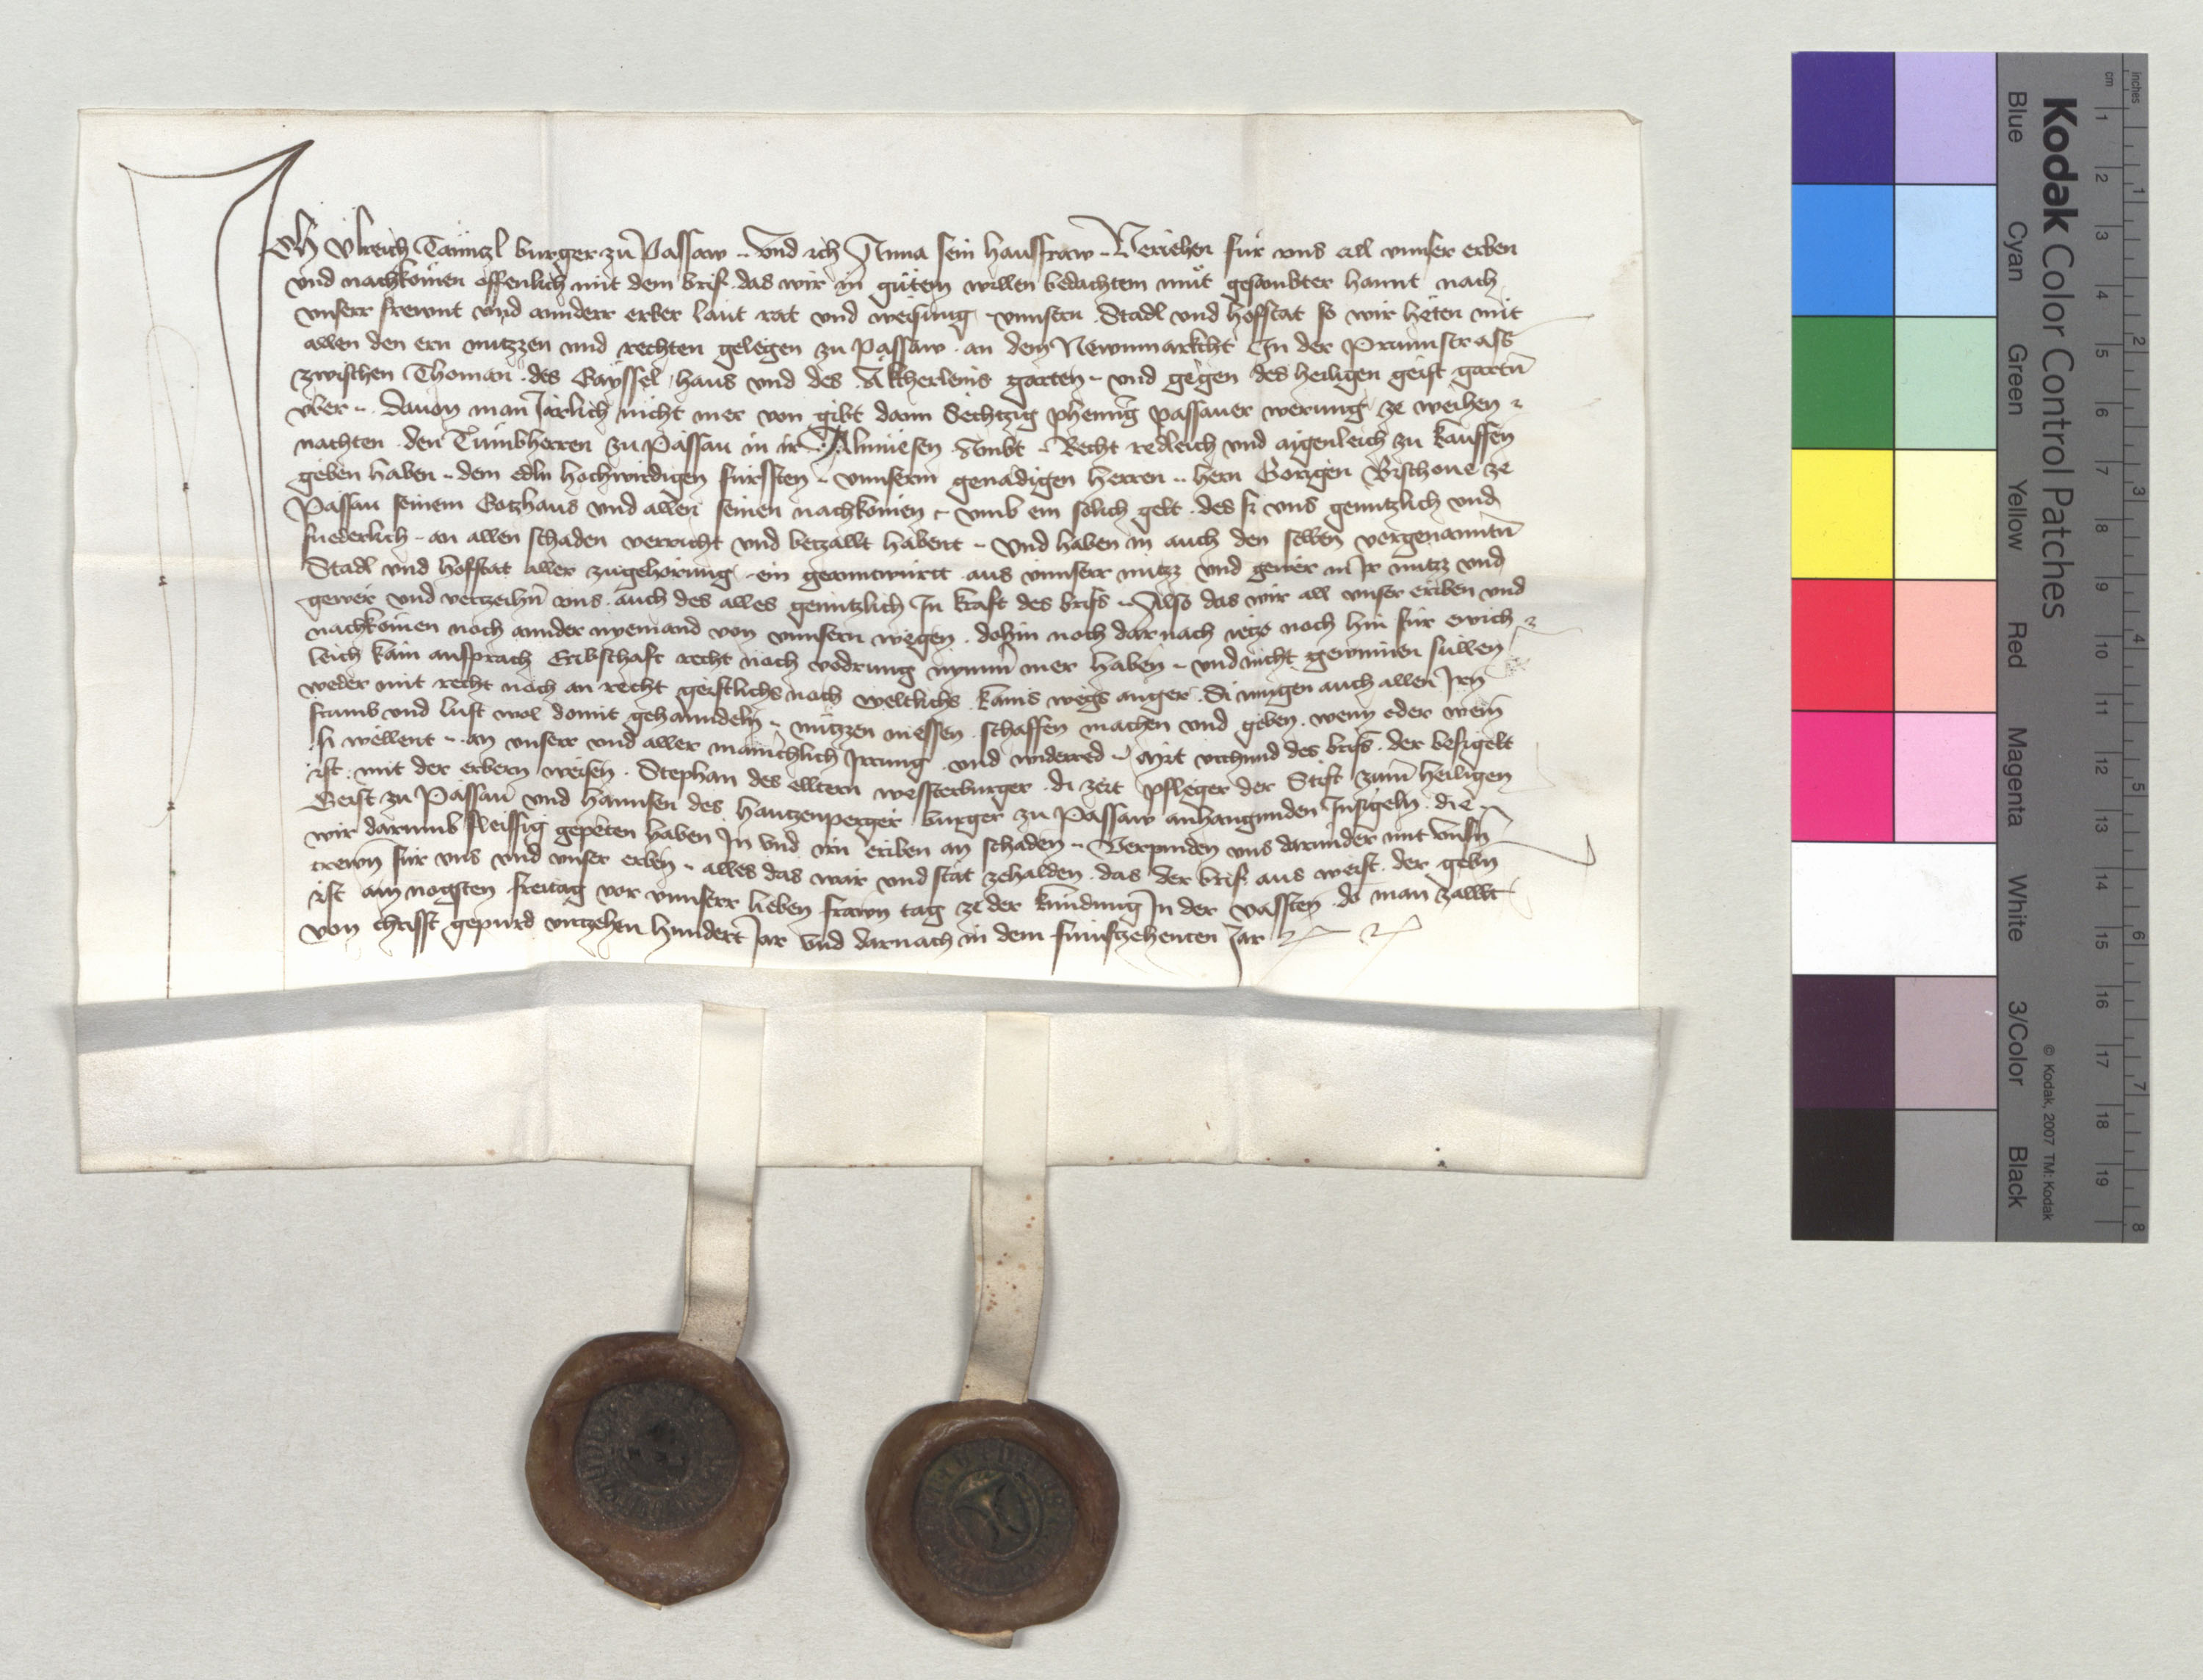 Ich Ulreich Täntzl burger zu Passaw .. Und ich Anna sein hausfraw .. Veriehen für uns all unser erben
und nachkomen offenlich mit dem brif . das wir in gutem willen bedachtem mut gesambter hannt nach
unserr frewnt und annderr erber laut rat und weisung unnsern Stadl und hofstat so wir heten mit
allen den ern nutzzen und rechten gelegen zu passaw . an dem Newnmarkcht In der Prunnstrass
zwischen Thoman des Gayssel haus und des Akcherleins garten .. und gegen des heiligen geist gartn
uber .. davon man Jarlich nicht mer von gibt dann Sechtzig phennig passauer werung ze weihen
nachten den Tumbherren zu Passau in ir Almuesen Ambt .. Recht redleich und aygenleich zu kauffen
geben haben .. dem edln hochwirdigen fürssten .. unnserm genadigen herren .. hern Görigen Bischove ze
Passau seinem Gotzhaus und allen seinen nachkomen .. umb ein solich gelt . des si uns genntzlich und
friederlich .. an allen schaden verricht und betzallt habent .. Und haben in auch den selben vorgenanntn
Stadl und hofstat aller zugehorung ein geanntwurtt aus unnserr nutz und gewer in Ir nutz und
gewer und vertzeihn uns . auch des alles genntzlich In kraft des brifs .. Also das wir all unser eriben und
nachkomen noch annder nyemand von unnsern wegen . dohin noch darnach ietzo noch hin für ewich
leich kain ansprach Eribschaft recht noch vodrung nymm mer haben .. und nicht gewinnen süllen
weder mit recht noch an recht geistlichs noch weltlichs kains wegs anger . Si mugen auch allen Irn
frumb und lust wol domit gehanndeln .. nutzen niessen . schaffen machen und geben . wenn oder wem
si wellent .. an unserr und aller mannichlich Irrung und widerred .. Mit urchund des brifs . der besigelt
ist . mit der erbern weisen . Stephan des elltern westerburger . di zeit pfleger der Stift zum heiligen
Geist zu Passau und hannsen des hautzenperger burger zu Passaw anhangunden Insigeln . die
wir darumb fleissig gepeten haben In und irn eriben an schaden .. Verpinden uns darunder mit unsn
trewn für uns und unser erben .. alles das war und stat zehalden . das der brif aus weist . der gebn
ist am nagsten freitag vor unnserr lieben frawn tag ze der kündung In der vassten . do man zallt
von christ gepurd virtzehen hundert Jar und darnach in dem fünftzehenten Jar
Kodak Color Control Patches
Blue Cyan Green Yellow Red Magenta White 3/Color Black
© Kodak, 2007 TM: Kodak
cm 1 2 3 4 5 6 7 8 9 10 11 12 13 14 15 16 17 18 19
inches 1 2 3 4 5 6 7 8